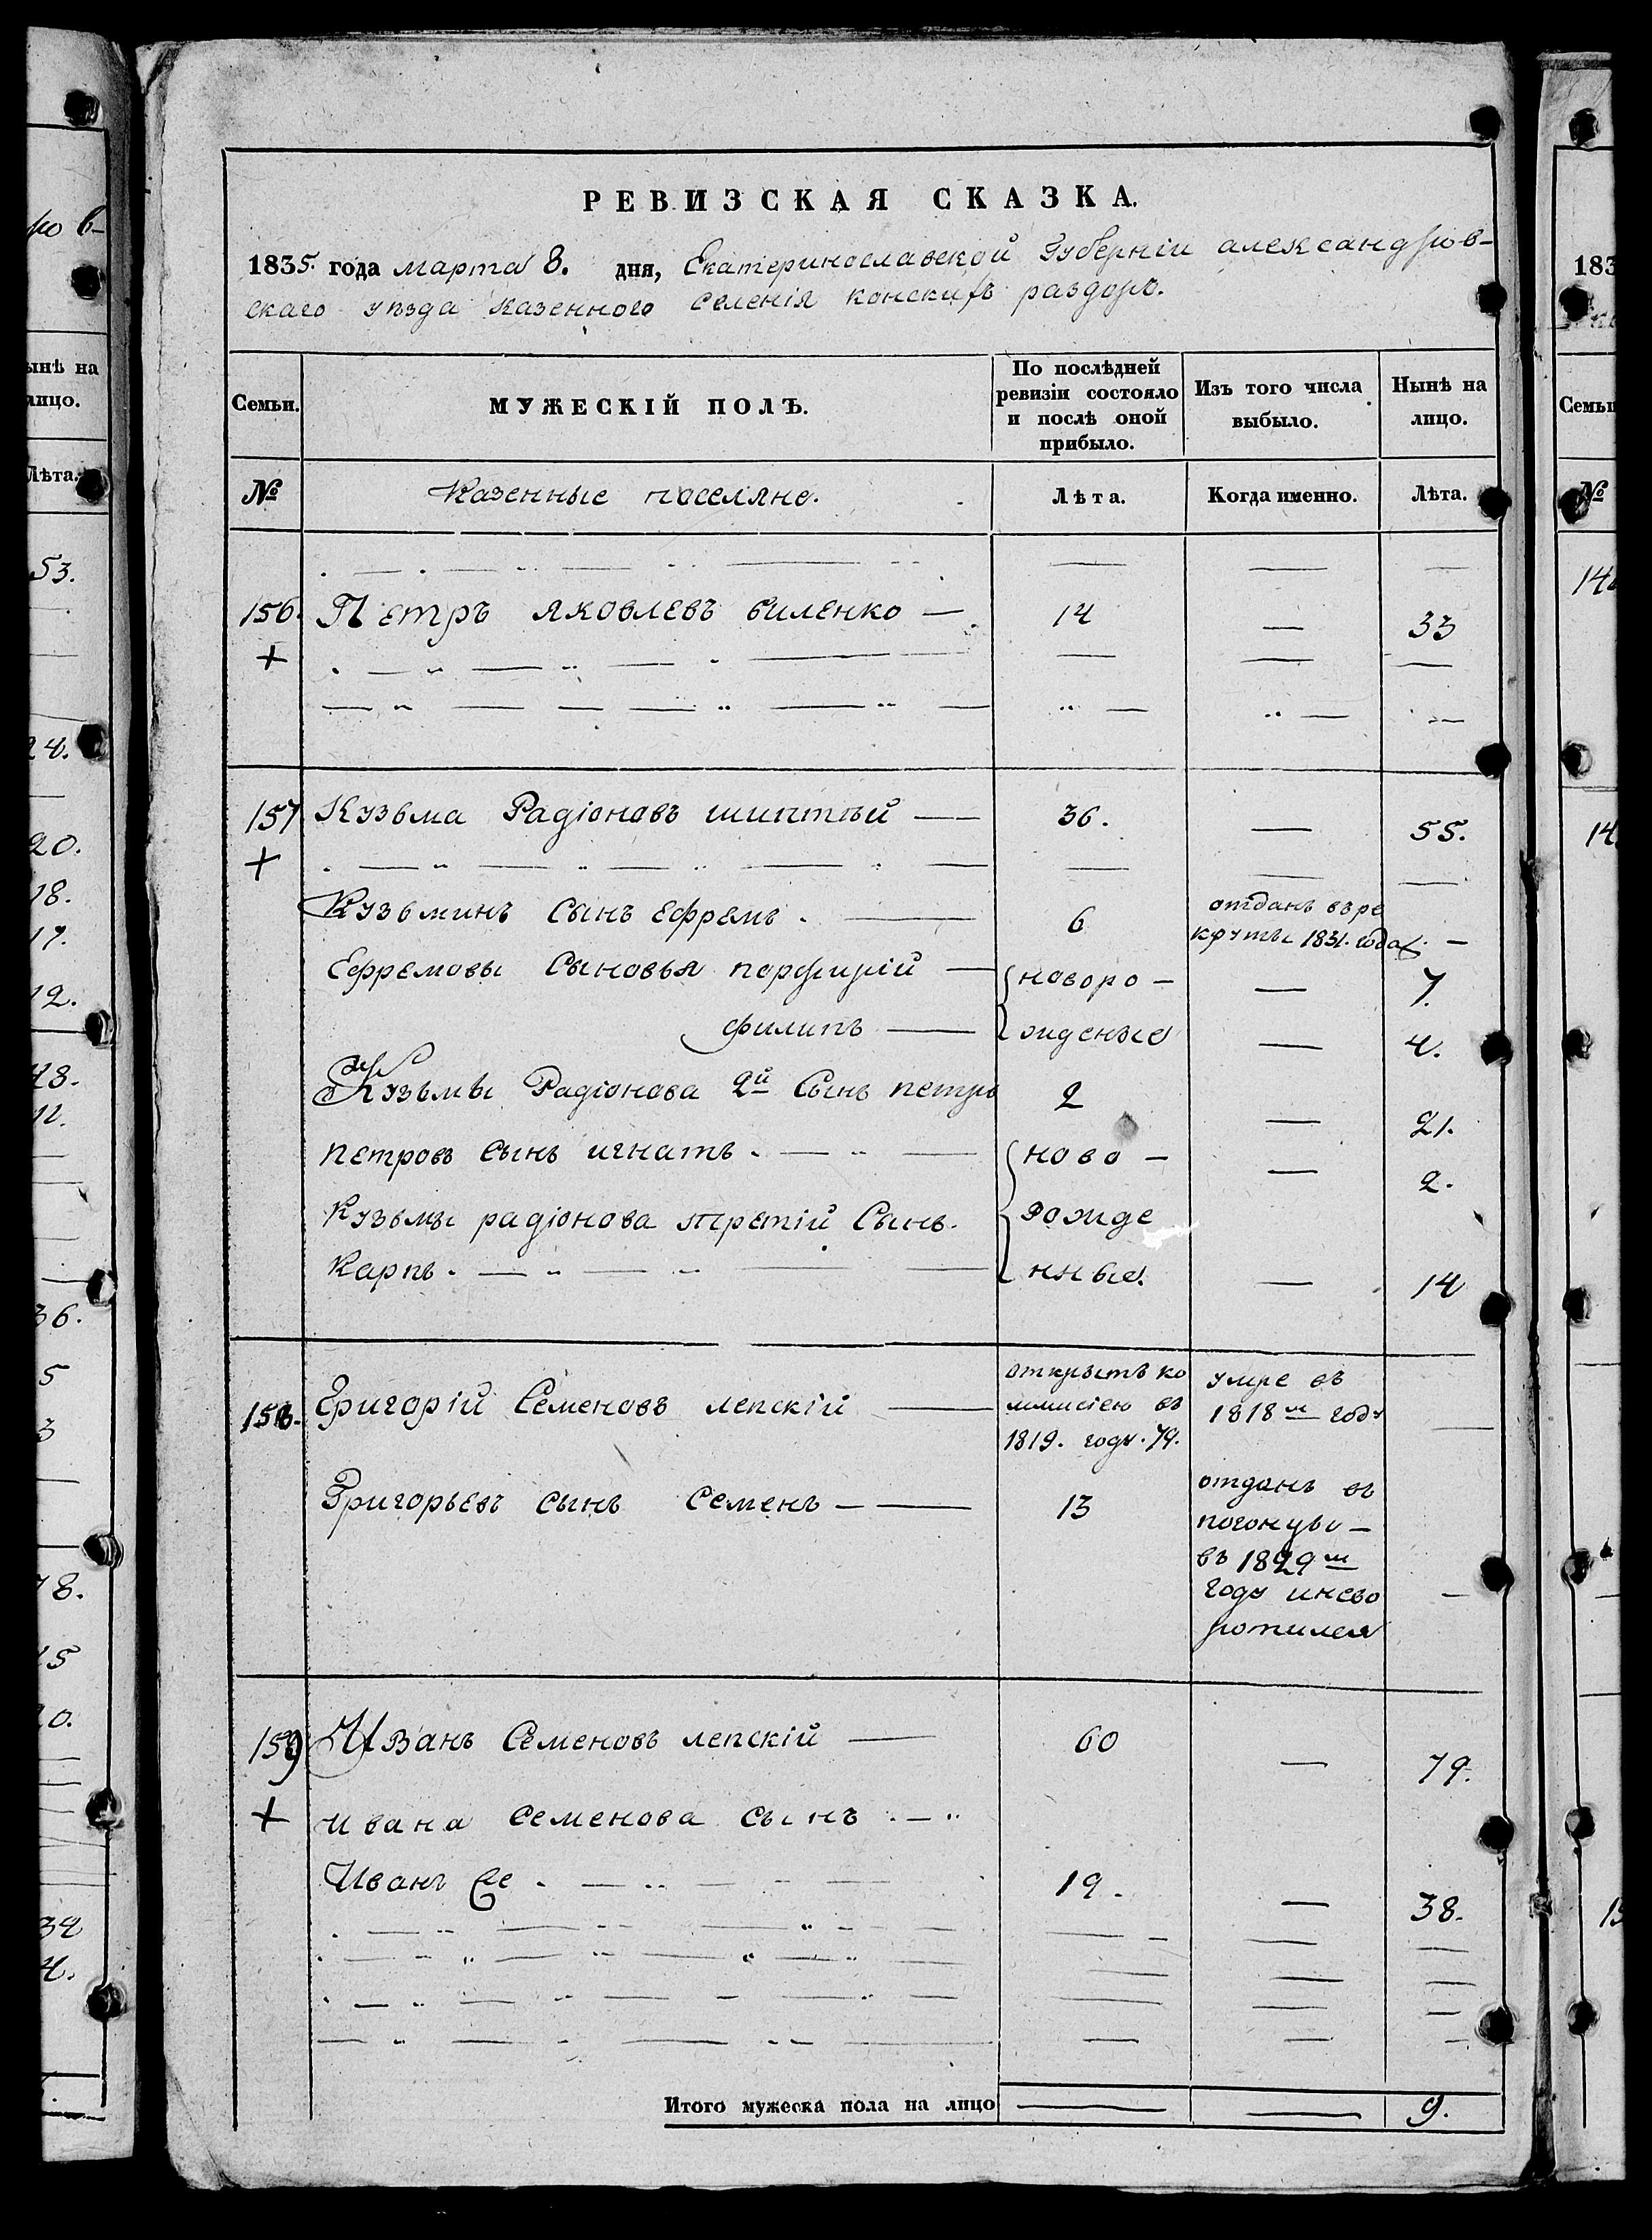 РЕВИЗСКАЯ СКАЗКА.
1835. года марта 8. дня, Екатеринославской Губерніи александров-
скаго уѣзда казенного селенія конскихъ раздоръ.
Семьи. МУЖЕСКІЙ ПОЛЪ. По послѣдней ревизіи состояло и послѣ оной прибыло. Изъ того числа выбыло. Нынѣ на лицо.
№ Казенные поселяне. Лѣта. Когда именно. Лѣта.
156. Петръ яковлевъ биленко — 14 — 33
+
157 Кузьма Радіоновъ шиптый — 36. — 55.
+
Кузьминъ Сынъ Ефремъ. — 6 отданъ въ ре
круты 1831. года. —
Ефремовы Сыновья порфирій — новоро- — 7.
филипъ — жденые — 4.
Кузьмы Радіонова 2й Сынъ петръ 2 — 21.
петровъ сынъ игнатъ. — ново- — 2.
Кузьмы радіонова третій Сынъ. рожде
Карпъ. — нные. — 14
158. Григорій Семеновъ лепскій — открытъ ко
ммисіею въ
1819. году. 79.
умре въ
1818м году —
Григорьевъ сынъ Семенъ — 13 отданъ въ
погонцы-
въ 1829м
году и нево
ротился —
159 Иванъ Семеновъ лепскій — 60 — 79.
+ ивана Семенова сынъ. —
Иванъ же. — 19. — 38.
Итого мужеска пола на лицо — — 9.
ро в-
ынѣ на
лицо.
Лѣта.
53.
24.
20.
18.
17.
12.
48.
12.
36.
5
3
78.
15
20.
34
4.
183
Семьи
№
14
14
15